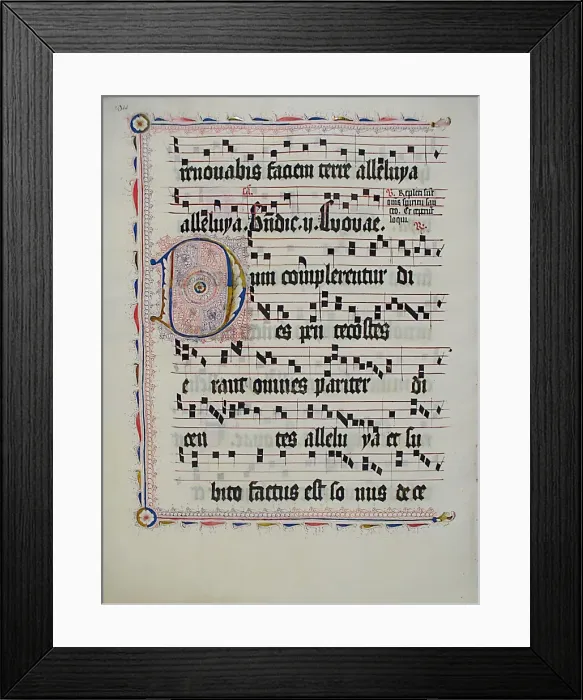 renouabis faciem terre alleluya
alleluya. Bn̄dic. y. Euouae.
V. Repleti sūt
oms spiritu san
cto. Et ceperūt
loqui.
R.
Dum complerentur di
es pen tecostes
e rant omnes pariter di
cen tes allelu ya et su
bito factus est so nus de ce